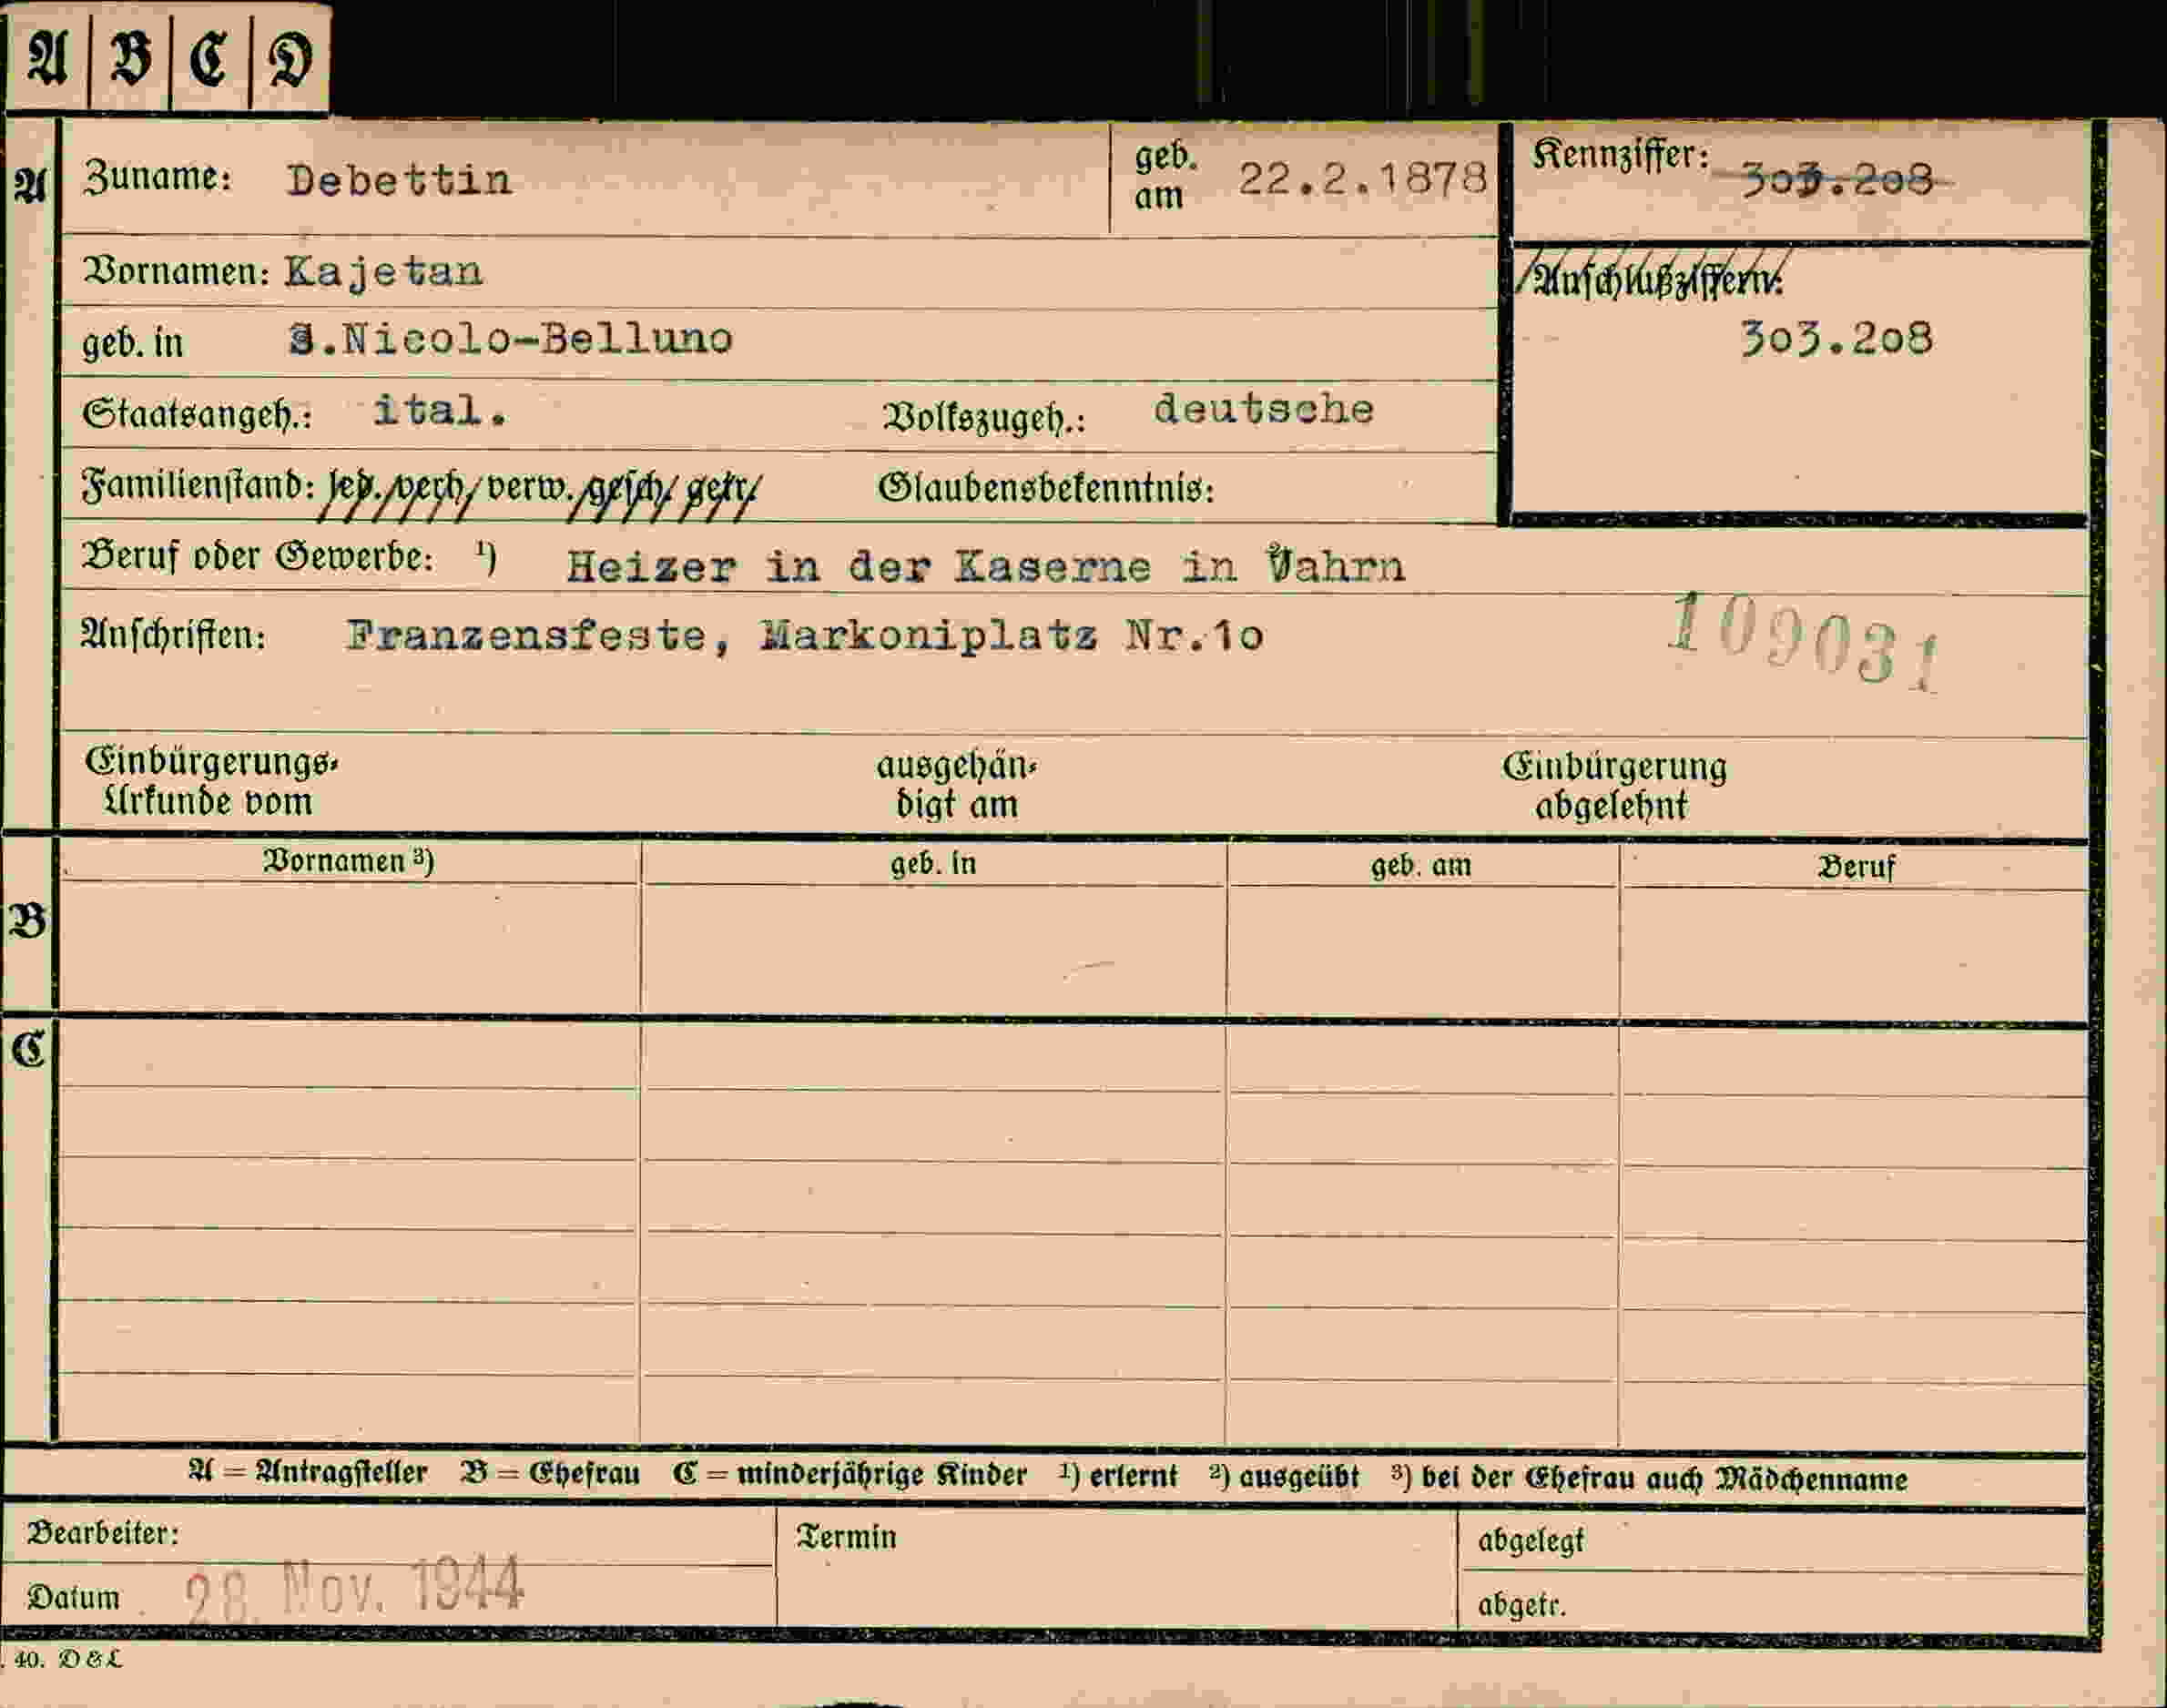 A B C D
A Zuname: Debettin geb. am 22.2.1878 Kennziffer: 303.208
Vornamen: Kajetan Anschlußziffern:
geb. in S.Nicolo-Belluno 303.208
Staatsangeh.: ital. Volkszugeh.: deutsche
Familienstand: led./verh/verw./gesch/getr/ Glaubensbekenntnis:
Beruf oder Gewerbe: ¹) Heizer in der Kaserne in Vahrn
Anschriften: Franzensfeste, Markoniplatz Nr.1o 109031
Einbürgerungs- ausgehän- Einbürgerung
Urkunde vom digt am abgelehnt
Vornamen ³) geb. in geb. am Beruf
B
C
A = Antragsteller B = Ehefrau C = minderjährige Kinder ¹) erlernt ²) ausgeübt ³) bei der Ehefrau auch Mädchenname
Bearbeiter: Termin abgelegt
Datum 28. Nov. 1944 abgetr.
. 40. D & L